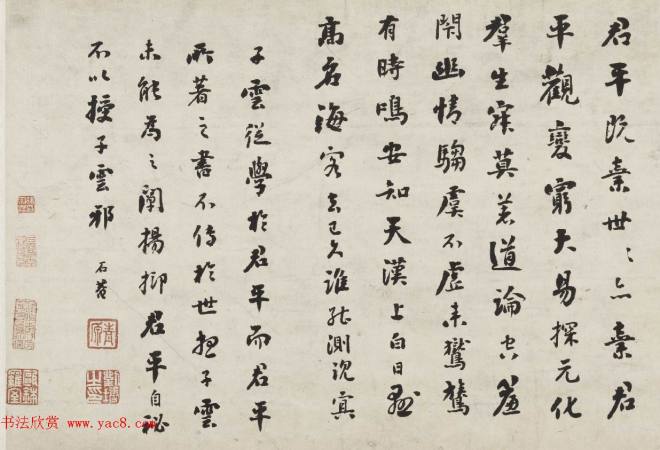 君平既棄世世亦棄君
平觀變窮大易探元化
羣生寂莫若道論空簾
閉幽情騶虞不虛來鸑鷟
有時鳴安知天漢上白日懸
高名海客去已久誰能測沉冥
子雲從學於君平而君平
所著之書不傳於世抑子雲
未能為之闡揚抑君平自秘
不以授子雲邪 石菴
书法欣赏 www.yac8.com